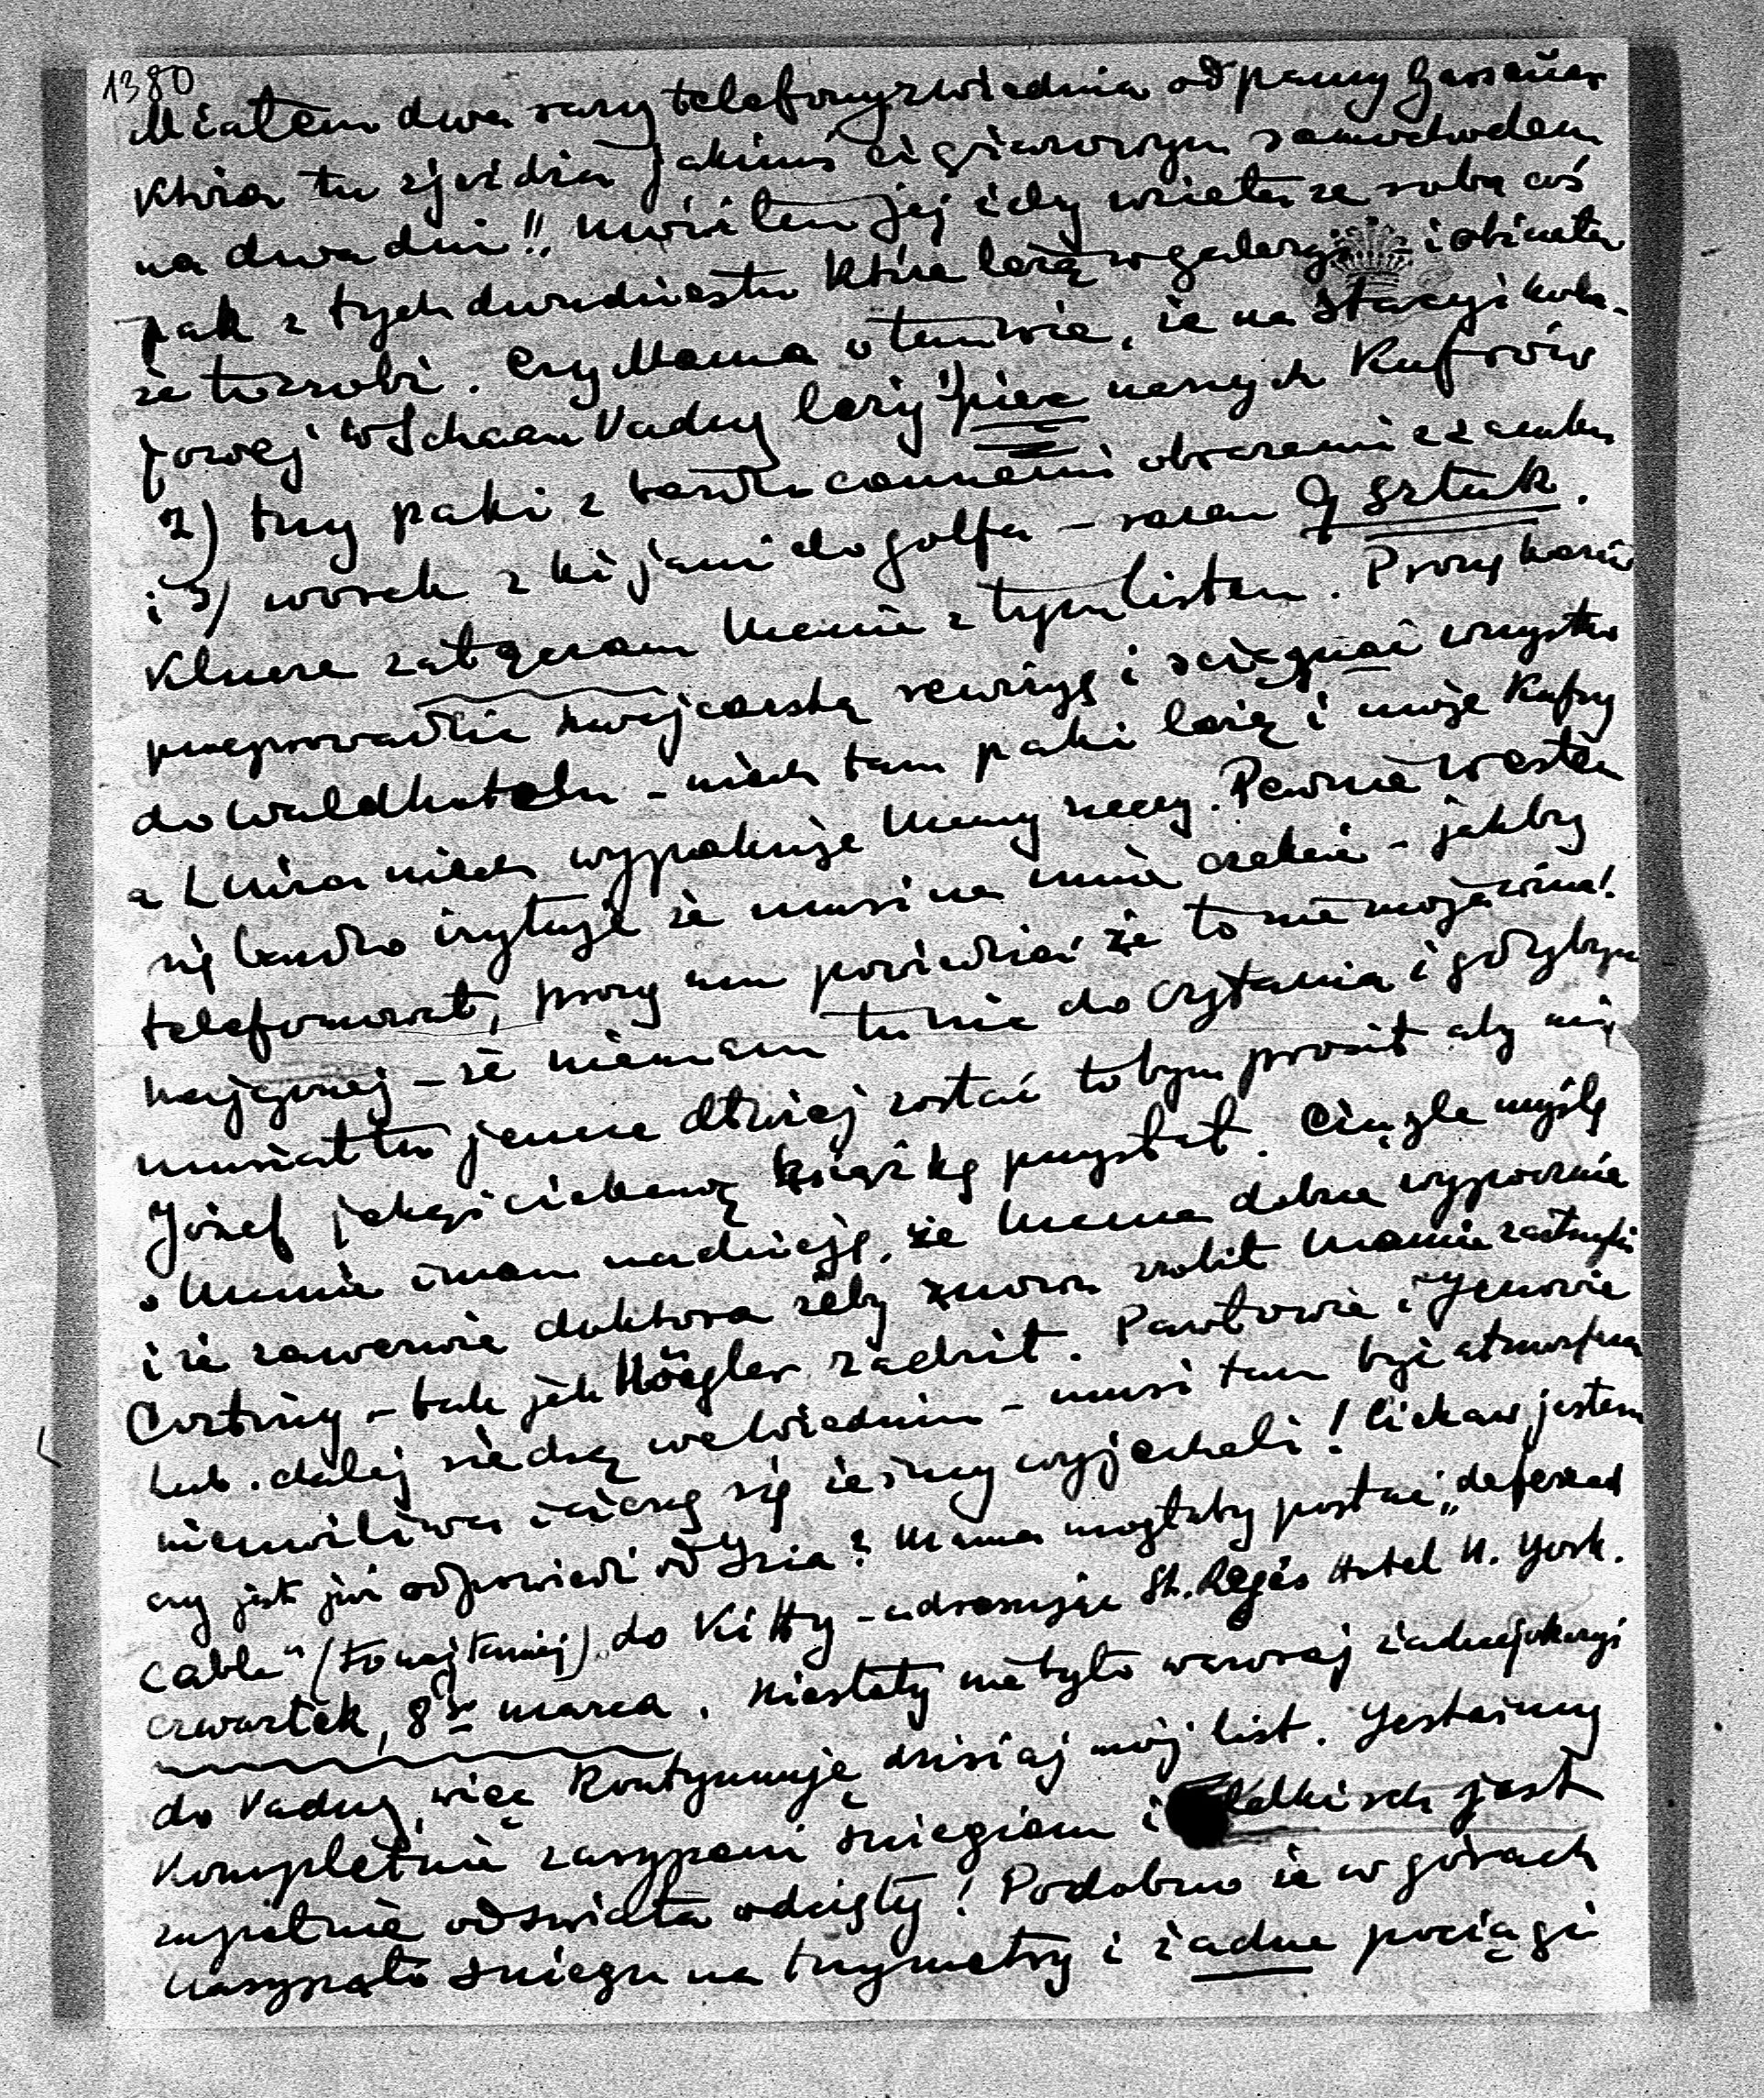 1380
Miałem dwa razy telefony z Wiednia od panny
która tu zjeżdża jakimś ciężarowym samochodem
na dwa dni!! Mówiłem jej żeby wzięła ze sobą coś
pak z tych dwudziestu które leżą w galeryi i obiecała
że to zrobi. Czy Mama o tem wie, że na stacyi kole-
jowej w Schaan Vaduz leży 1) pięć naszych kufrów
2) trzy paki z bardzo cennemi obrazami z zamku
i 3) worek z kijami do golfa – razem 9 sztuk.
Klucze załączam Mamie z tym listem. Proszę kazać
przeprowadzić szwajcarską rewizyę i ściągnąć wszystko
do Waldhotelu – niech tam paki leżą i moje kufry
a Luiza niech wypakuje Mamy rzeczy. Pewnie
się bardzo irytuje że musi na mnie czekać – jakby
telefonował, proszę mu powiedzieć że to nie moja wina!
najgorzej – że niemam tu nic do czytania i gdybym
musiał tu jeszcze dłużej zostać to bym prosił aby mi
Józef jakąś ciekawą książkę przysłał. Ciągle myślę
o Mamie i mam nadzieję, że Mama dobrze wypocznie
i że zawezwie doktora żeby znowu zrobił Mamie zastrzyki
Cortiny – tak jak Högler radził. Pawłowie i
Lub. dalej siedzą we Wiedniu – musi tam być atmosfera
niemożliwa i cieszę się żeśmy wyjechali! Ciekaw jestem
czy jest już odpowiedź od Izia? Mama mogłaby posłać „deferred
cable" (to najtaniej) do Kitty – adresując St. Regis Hotel N. York.
czwartek, 8go marca. Niestety nie było wczoraj żadnej okazyi
do Vaduz, więc kontynuuję dzisiaj mój list. Jesteśmy
kompletnie zasypani śniegiem i Feldkirch jest
zupełnie od świata odcięty! Podobno że w górach
nasypało śniegu na trzy metry i żadne pociągi